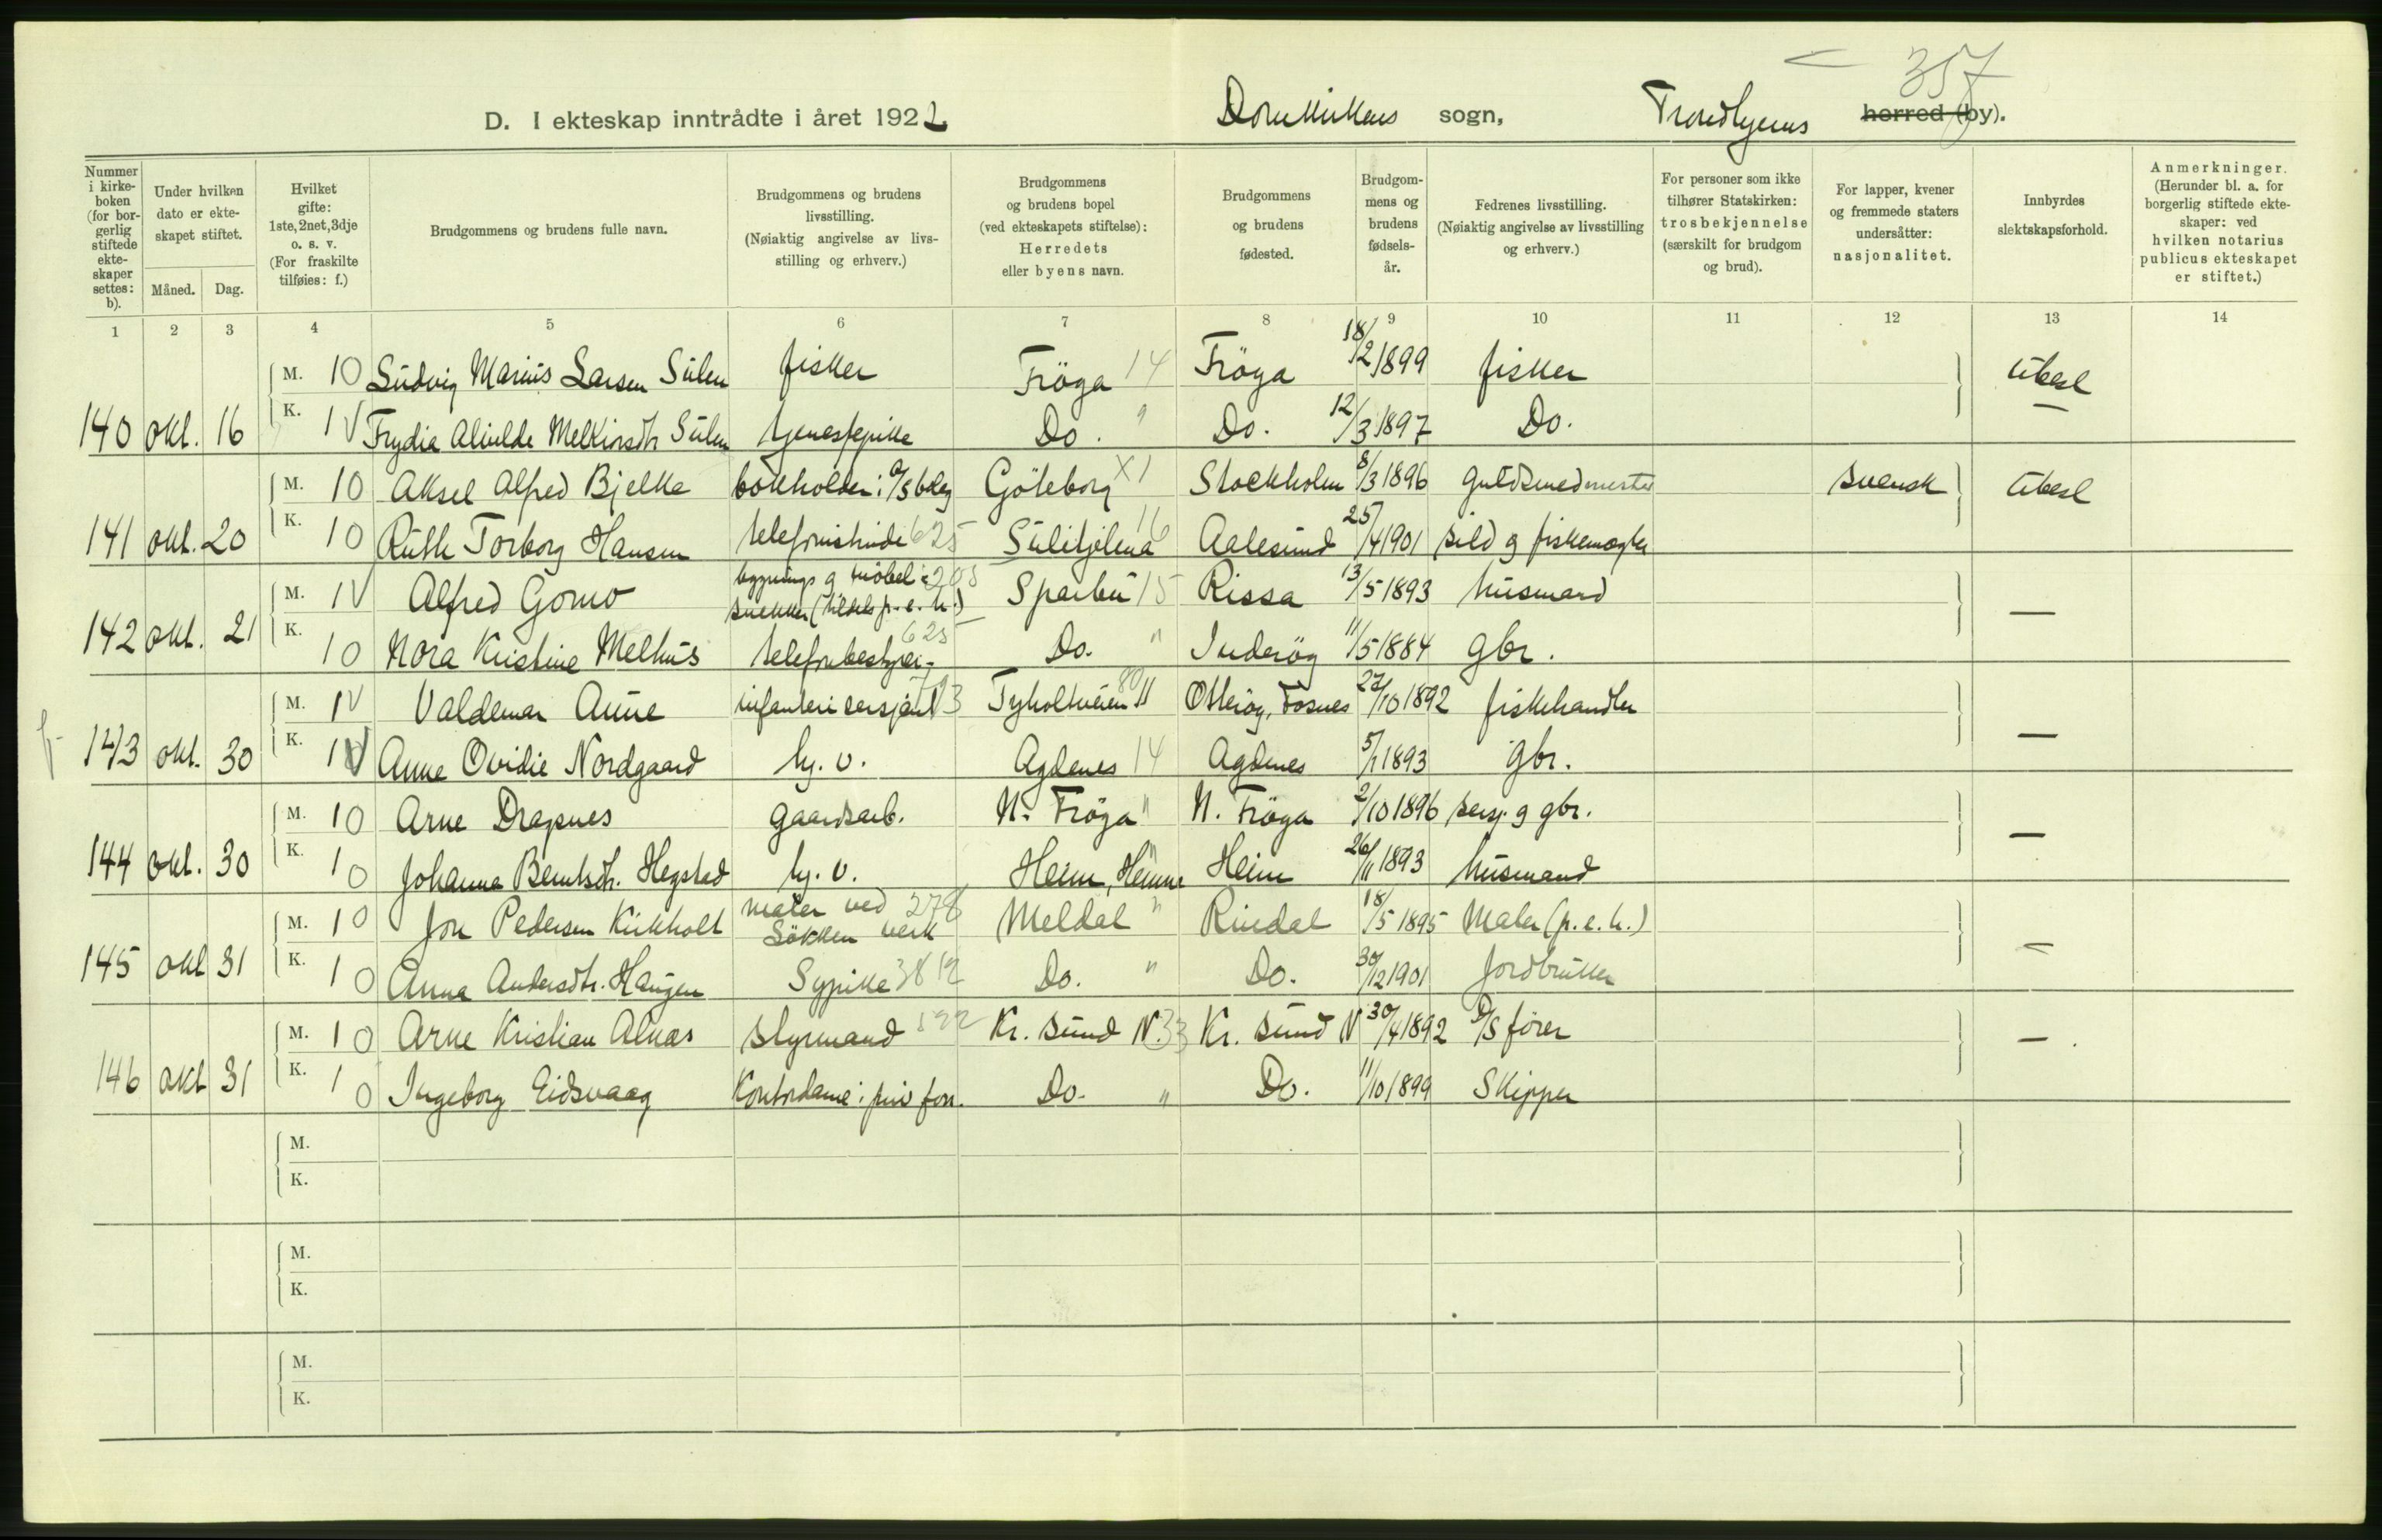 357
D. I ekteskap inntrådte i året 1922 Domkirkens sogn, Trondhjems herred (by).
Nummer i kirkeboken (for borgerlig stiftede ekteskaper settes: b).
Under hvilken dato er ekteskapet stiftet.
Måned. Dag.
Hvilket gifte: 1ste, 2net, 3dje o. s. v. (For fraskilte tilføies: f.)
Brudgommens og brudens fulle navn.
Brudgommens og brudens livsstilling. (Nøiaktig angivelse av livsstilling og erhverv.)
Brudgommens og brudens bopel (ved ekteskapets stiftelse): Herredets eller byens navn.
Brudgommens og brudens fødested.
Brudgommens og brudens fødselsår.
Fedrenes livsstilling. (Nøiaktig angivelse av livsstilling og erhverv.)
For personer som ikke tilhører Statskirken: trosbekjennelse (særskilt for brudgom og brud).
For lapper, kvener og fremmede staters undersåtter: nasjonalitet.
Innbyrdes slektskapsforhold.
Anmerkninger. (Herunder bl. a. for borgerlig stiftede ekteskaper: ved hvilken notarius publicus ekteskapet er stiftet.)
1 2 3 4 5 6 7 8 9 10 11 12 13 14
M. 10 Ludvig Marius Larsen Sulen fisker Fröya 14 Fröya 18/12 1899 fisker ubesl
140 okt. 16 K. 1V Frydia Alvilde Melkiorsdtr Sulen tjenestepike Do. " Do. 12/3 1897 Do. —
M. 10 Aksel Alfred Bjelke bokholder i A/S bolag Göteborg X1 Stockholm 8/3 1896 guldsmedmester svensk ubesl
141 okt. 20 K. 10 Ruth Torborg Hansen telefonistinde 625 Sulitjelma 16 Aalesund 25/4 1901 sild g fiskemægler
M. 1V Alfred Gomo bygnings g möbel- 205 snekker (tildels p.e.h.) Sparbu 15 Rissa 13/5 1893 husmand —
142 okt. 21 K. 10 Nora Kristine Melhus telefonbestyrer- 625 Do. " Inderöy 11/5 1884 gbr.
M. 1V Valdemar Aune infanteri sersjant Tyholtveien 80 11 Otteröy, Fosnes 27/10 1892 fiskehandler
143 okt. 30 K. 1V Anne Ovidie Nordgaard hj. v. Agdenes 14 Agdenes 5/1 1893 gbr. —
M. 10 Arne Dragsnes gaardsarb. N. Fröya " N. Fröya 2/10 1896 sersj. g gbr. —
144 okt. 30 K. 10 Johanna Berntsdtr. Hegstad hj. v. Heim, Hemne " Heim 26/11 1893 husmand
M. 10 Jon Pedersen Kirkholt maler ved 278 Lökken verk Meldal " Rindal 18/5 1895 Maler (p.e.h.) —
145 okt 31 K. 10 Anna Andersdtr. Haugen Sypike 3812 Do. " Do. 30/12 1901 Jordbruker
M. 10 Arne Kristian Alnæs styrmand 522 Kr. sund N. 33 Kr. sund N 30/4 1892 D/S förer —
146 okt 31 K. 10 Ingeborg Eidsvaag Kontordame i priv forr. Do. " Do. 11/10 1899 Skipper
M.
K.
M.
K.
M.
K.